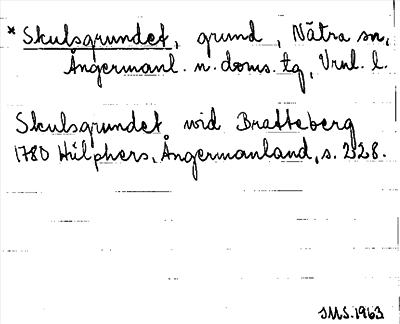 * Skulsgrundet, grund, Nätra sn,
Ångermanl. n. doms. tg, Vrnl. l.
Skulsgrundet vid Bratteberg
1780 Hülphers, Ångermanland, s. 228.
JMS. 1963